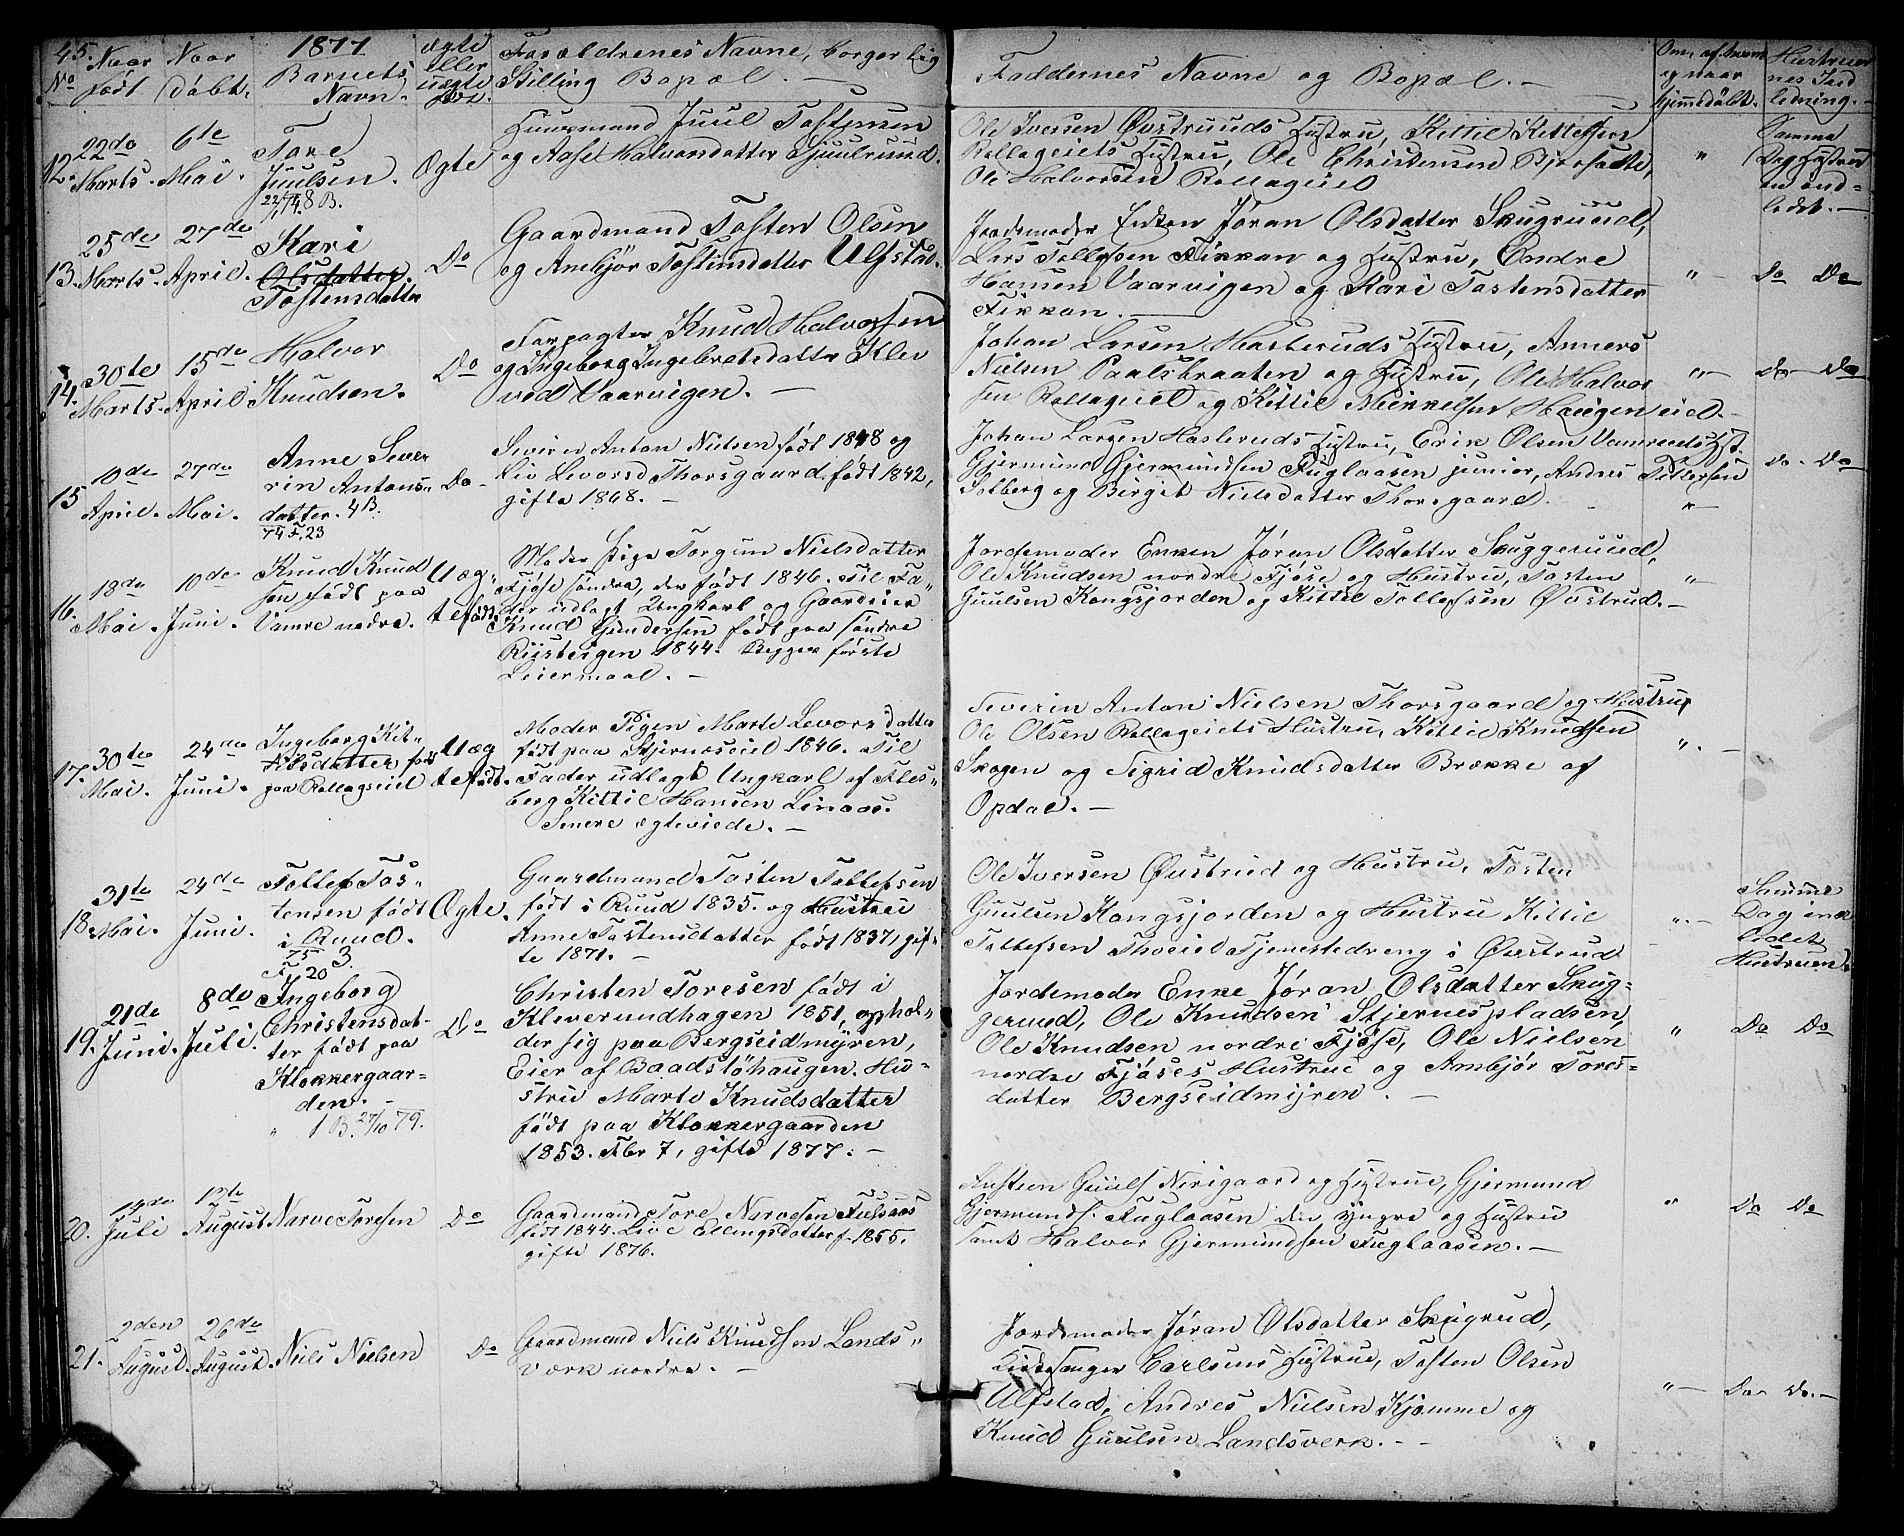 45.
No
Naar født
Naar døbt.
1877
Barnets Navn.
ægte eller uægte født.
Forældrenes Navne, borgerlig
Stilling Bopæl. —
Faddernes Navne og Bopæl. —
Om, af hvem og naar hjemmedøbt.
Hustruernes Indledning. —
12.
22de Marts.
6te Mai.
Tore
Juulsen.
8 B.
Ægte
Huusmand Juul Tostensen
og Aase Halvorsdatter Gjuulsrund.
Ole Iversen Øvstruuds Hustru, Kittil Kittelsen
Rollageiets Hustru, Ole Christensen
Ole Halvorsen Rollageiet
"
Samme
Dag Hustru
en ind=
ledet. —
13.
25de Marts.
27de April.
Kari
Olsdatter
Tostensdatter
Do
Gaardmand Tosten Olsen
og Anebjør Tostensdatter Ulfstad.
Jordemoder Enken Jøran Olsdatter Skugruud,
Lars Tollefsen Fikkan og Hustru, Endre
Hansen Vaarvigen og Kari Tostensdatter
Fikkan. —
" —
Do Do
14.
30te Marts.
15de April
Halvor
Knudsen.
Do
Forpagter Knud Halvorsen
og Ingeborg Ingebretsdatter Klev
ved Vaarvigen. —
Johan Larsen Hasleruds Hustru, Anners
Nielsen Paalsbraaten og Hustru, Ole Halvor
sen Rollageiet og Kittil Mikkelsen Haugeneiet.
" —
Do — Do
15
10de April.
27de Mai.
Anne Seve-
rin Antons-
datter. 4 B.
74 F. 23
Do -
Severin Anton Nielsen født 1848 og
Liv Levorsd Thorsgaard født 1842,
gifte 1868. —
Johan Larsen Hasleruds Hustru, Erik Olsen Vamreeids Hst.
Gjermund Gjermundsen Fuglaasen junior, Andres Pettersen
Solberg og Birgit Nielsdatter Thorsgaard.
" —
Do - Do
16.
18de Mai.
10de Juni.
Knud Knud
sen født paa
Vamre nedre.
Uæg-
tefødt
Moder Pige Torgun Nielsdatter
Fjøse søndre, der født 1846. Til Fa-
der udlagt Ungkarl og Gaardeier
Knud Gundersen født paa søndre
Riisteigen 1844. Begges første
Leiermaal. —
Jordemoder Enken Jøran Olsdatter Skuggeruud,
Ole Knudsen nordre Fjøse og Hustru, Tosten
Guulsen Kongsjorden og Kittil Tollefsen Øvstrud. —
"
17.
30te Mai.
24de Juni.
Ingeborg Kit-
tilsdatter født
paa Rollagseiet
Uæg
tefødt.
Moder Pigen Marte Levorsdatter
født paa Stjernoseiet 1846. Til
Fader udlagt Ungkarl af Fles-
berg Kittil Hansen Linaas.
Senere ægteviede. —
Severin Anton Nielsen Thorsgaard og Hustru,
Ole Olsen Rollageiets Hustru, Kittil Knudsen
Skogen og Sigrid Knudsdatter Brække af
Opdal. —
" —
18.
31te Mai.
24de Juni.
Tollef Tos-
tensen født
i Ruud.
75 3
F. 20
Ægte.
Gaardmand Tosten Tollefsen
født i Ruud 1835. og Hustru
Anne Tostensdatter født 1837, gif-
te 1871. —
Ole Iversen Øvstrud og Hustru, Tosten
Guulsen Kongsjorden og Hustru Kittil
Tollefsen Thoeiet Tjenestedreng i Øvstrud
" —
Samme
Dag ind
ledet
Hustruen.
19.
21de Juni.
8de Juli.
Ingeborg
Christensdat-
ter født paa
Klokkergaar-
den. —
" 1 B. 27/10 79.
Do
Christen Toresen født i
Kleverundhagen 1851, ophol-
der sig paa Bergseidmyren,
Eier af Baadstøhaugen. Hu-
stru Marte Knudsdatter
født paa Klokkergaarden
1853. Fbr 7, gifte 1877. —
Jordemoder Enke Jøran Olsdatter Skug-
gerud, Ole Knudsen Stjernespladsen,
Ole Knudsen nordre Fjøse, Ole Nielsen
nordre Fjøses Hustrue og Ambjør Tores-
datter Bergseidmyren. —
"
Do Do
20.
19de Juli
12te August
Narve Toresen
Do
Gaardmand Tore Narvesen Fulsaas
født 1844. Live Ellingsdatter f. 1855.
gifte 1876.
Austeen Guuls Nirigaard og Hustrue, Gjermund
Gjermunds. Fuglaasen den yngre og Hustru
samt Halvor Gjermundsen Fuglaasen. —
"
Do Do
21.
2den August.
26de August.
Niels Nielsen
Do
Gaardmand Niels Knudsen Lands-
værk nordre. —
Jordemoder Jøran Olsdatter Skugrud,
Kirkesanger Carlsens Hustrue, Tosten Olsen
Ulfstad, Andres Nielsen Kjømme og
Knud Guulsen Landsverk. —
" —
Do - Do. —